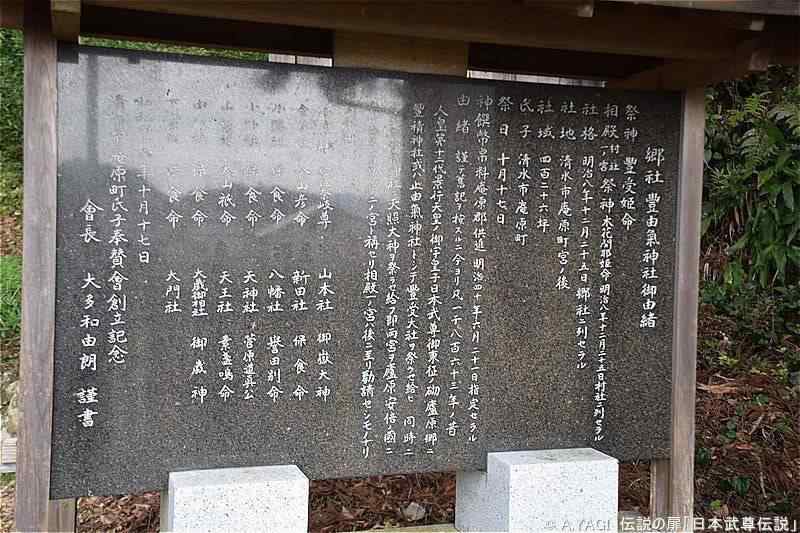 郷社 豊由氣神社御由緒
祭神 豐受姫命
相殿 村社 一ノ宮 祭神 木花開耶姫命 明治八年十二月二十五日村社ニ列セラル
社格 明治八年十二月二十五日郷社ニ列セラル
社地 清水市庵原町宮ノ後
社域 四百二十六坪
氏子 清水市庵原町
祭日 十月十七日
神饌幣帛料庵原郡供進 明治四十年六月二十一日指定セラル
由緒 謹テ書記ヲ按スルニ今ヨリ凡一千八百六十三年ノ昔
人皇第十二代景行天皇ノ御宇皇子日本武尊御東征ノ砌廬原郷ニ
豊積神社 止由氣神社トシテ豐受大社ヲ祭ラセ給ヒ 同時ニ
天照大神ヲ祭ラセ給フ即両宮ヲ廬原安倍ノ國ニ
ニノ宮ト稱セリ相殿一ノ宮ハ後ニ至リ勧請センモノナリ
山本社 御嶽大神
新田社 保食命
八幡社 譽田別命
保食命 天神社 菅原道真公
大山祇命 天王社 素盞嗚命
保食命 大歳御祖社 御歳神
食命 大門社
年十月十七日
庵原町氏子奉賛會創立記念
會長 大多和由朗 謹書
© A.YAGI 伝説の扉「日本武尊伝説」